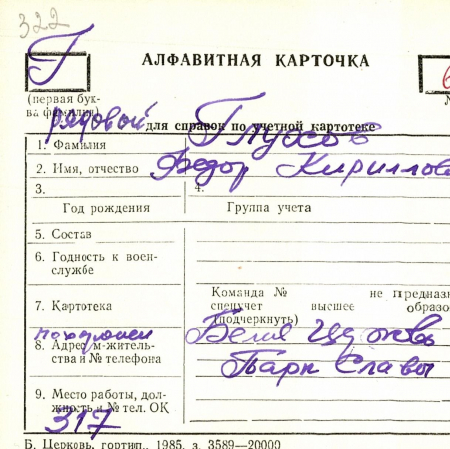 322
Г
АЛФАВИТНАЯ КАРТОЧКА
(первая бук-
ва фамилии)
рядовой
для справок по учетной картотеке
1. Фамилия Глухов
2. Имя, отчество Федор Кириллов
3. 4.
Год рождения Группа учета
5. Состав
6. Годность к воен-
службе
Команда № не предназн
7. Картотека спецучет высшее образо
(подчеркнуть)
похоронен Белая Церковь
8. Адрес м-житель-
ства и № телефона Парк Славы
9. Место работы, дол-
жность и № тел. ОК
317
Б. Церковь, гортип., 1985, з. 3589—20000